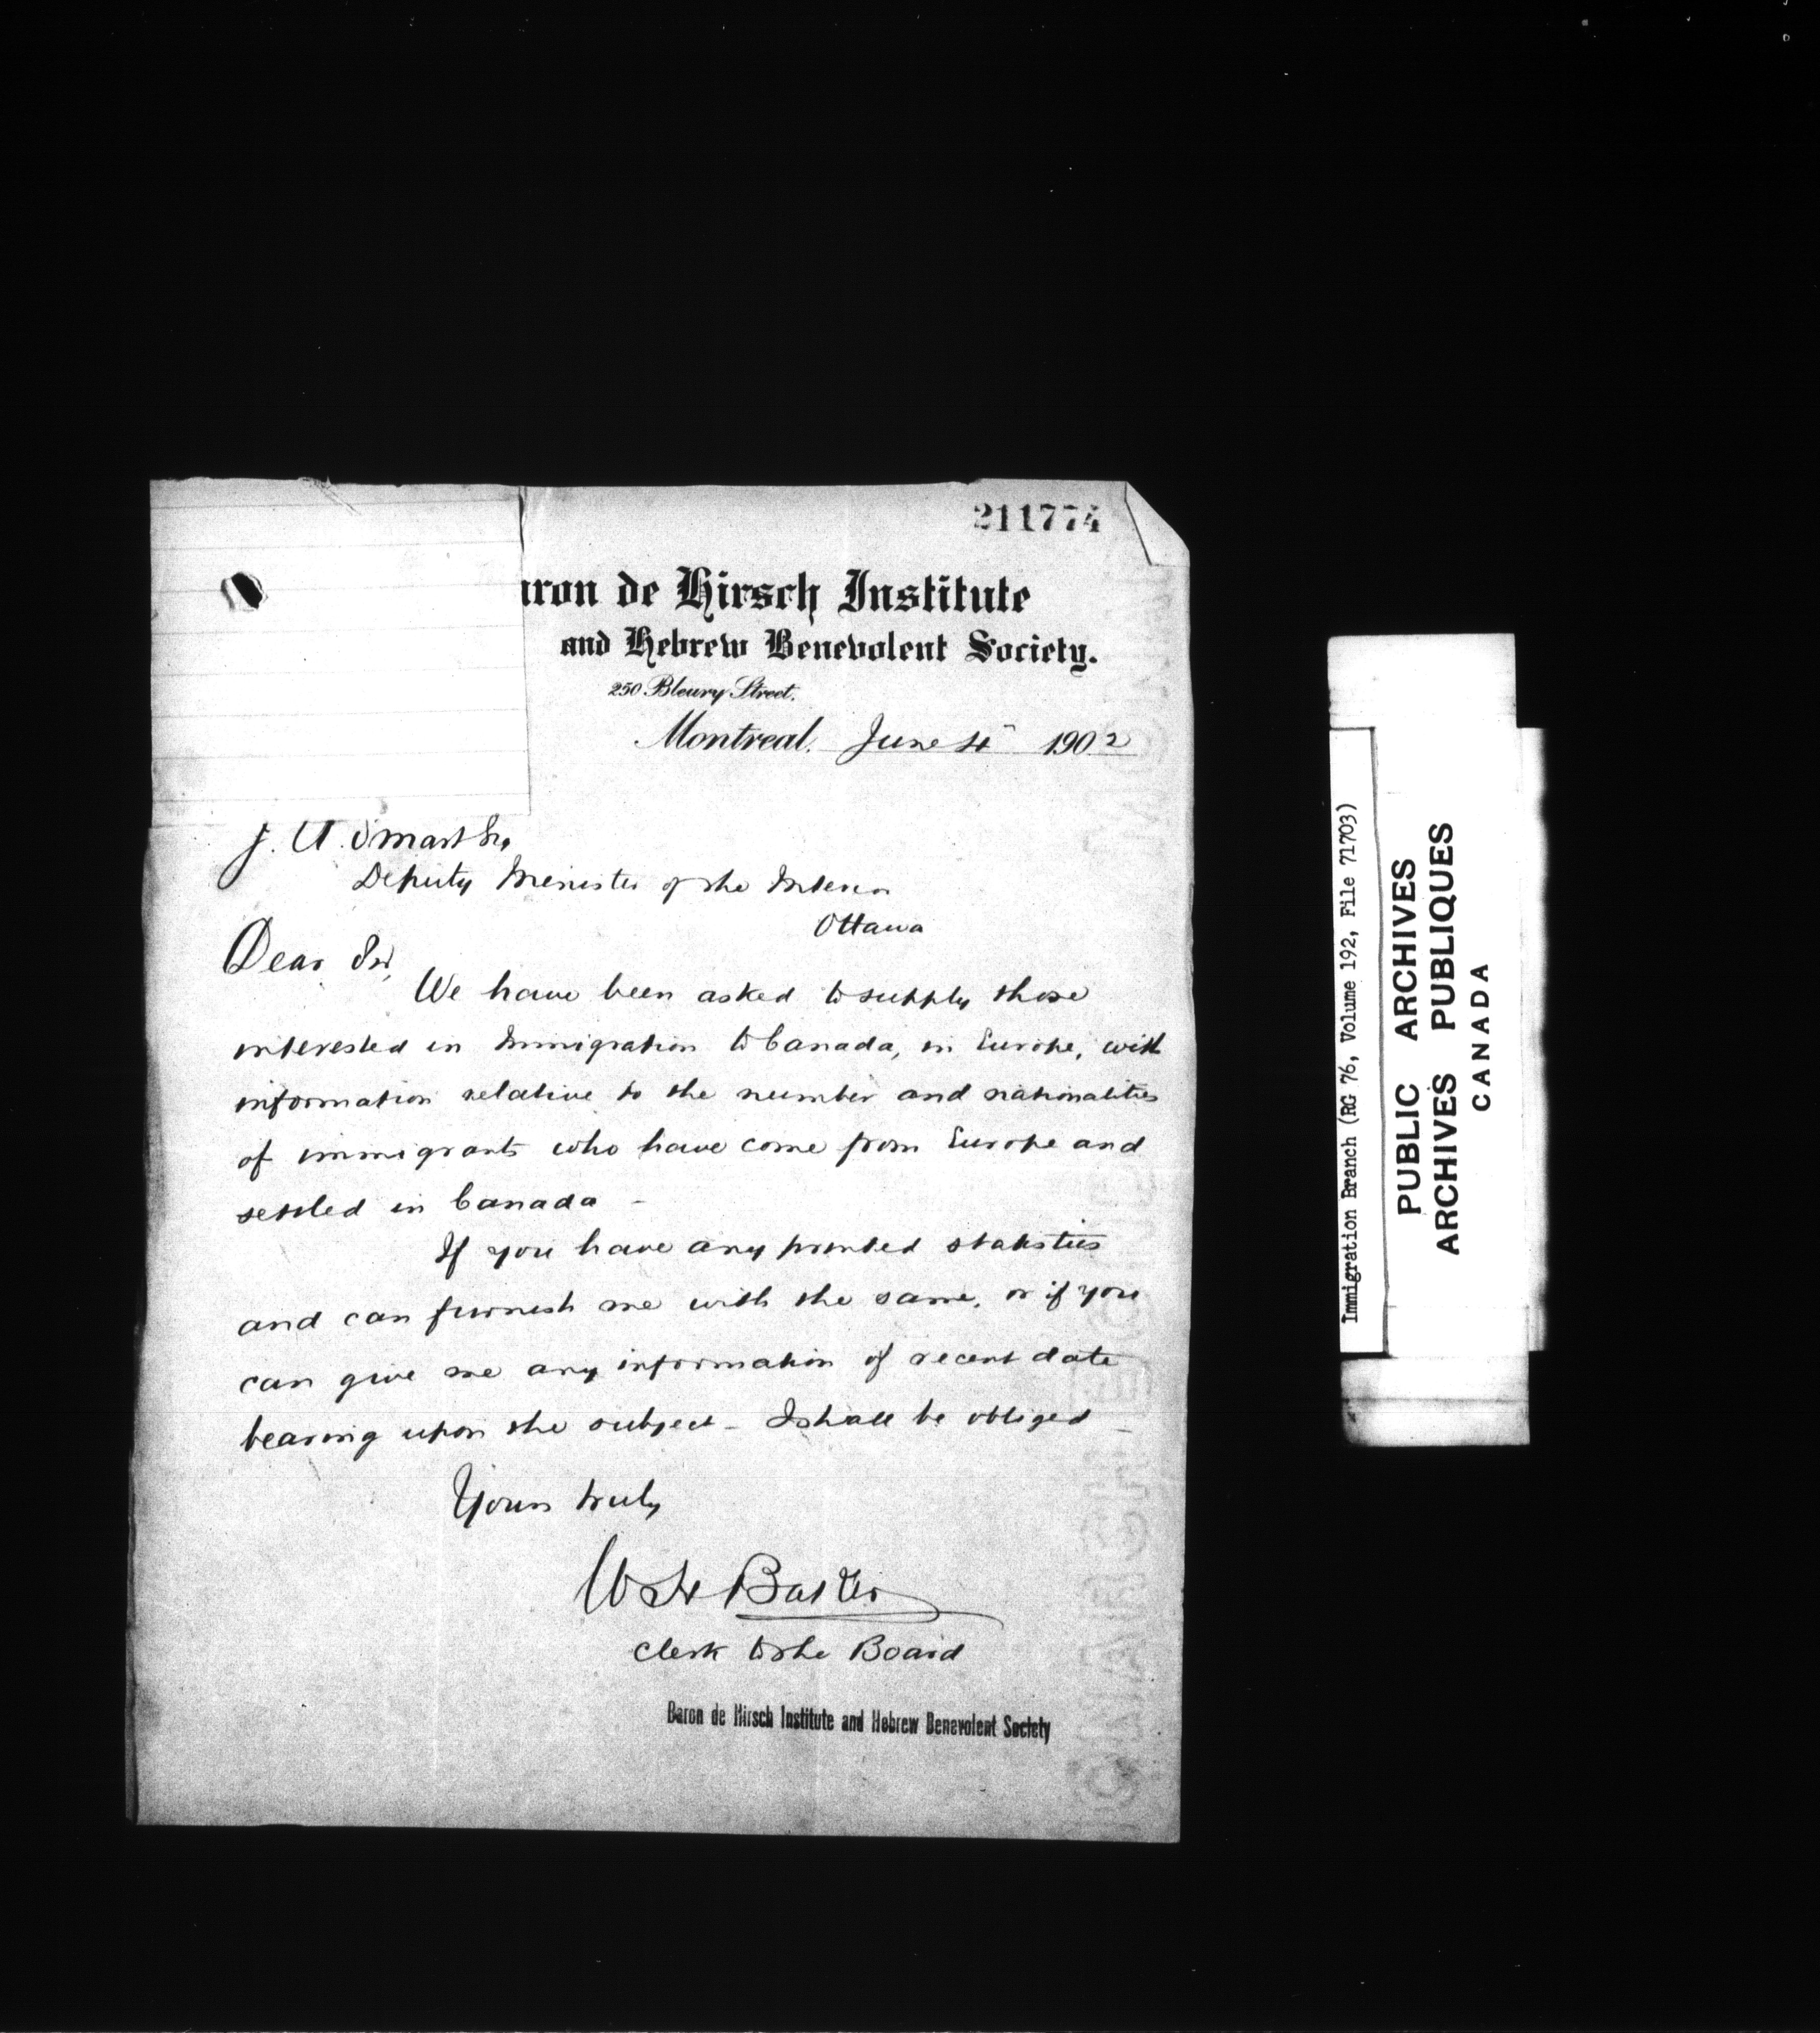 211774
aron de Hirsch Institute
and Hebrew Benevolent Society.
250 Bleury Street.
Montreal. June 4" 1902
J. A. Smart
Deputy Minister of the Interior
Ottawa
Dear Sir,
We have been asked to supply those
interested in Immigration to Canada, in Europe, with
information relative to the number and nationalities
of immigrants who have come from Europe and
settled in Canada -
If you have any printed statistics
and can furnish me with the same, or if you
can give me any information of recent date
bearing upon the subject - I shall be obliged -
Yours truly
W H Baker
Clerk to the Board
Baron de Hirsch Institute and Hebrew Benevolent Society
Immigration Branch (RG 76, Volume 192, File 71703)
PUBLIC ARCHIVES
ARCHIVES PUBLIQUES
CANADA